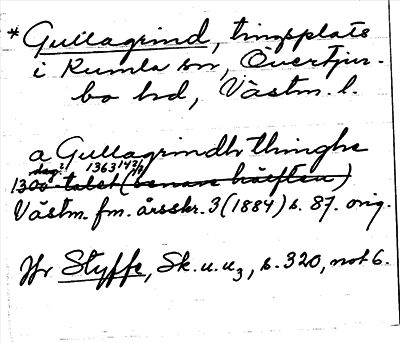 * Gullagrind, tingsplats
i Kumla sn, Övertjur-
bo hd, Västm. l.
a Gullagrindh thinghe
dag: 1363 14 2/6
1300-talet (senare hälften)
Västm. fm. årsskr. 3 (1884) s. 87. orig.
Jfr Styffe, Sk. u. u3, s. 320, not 6.